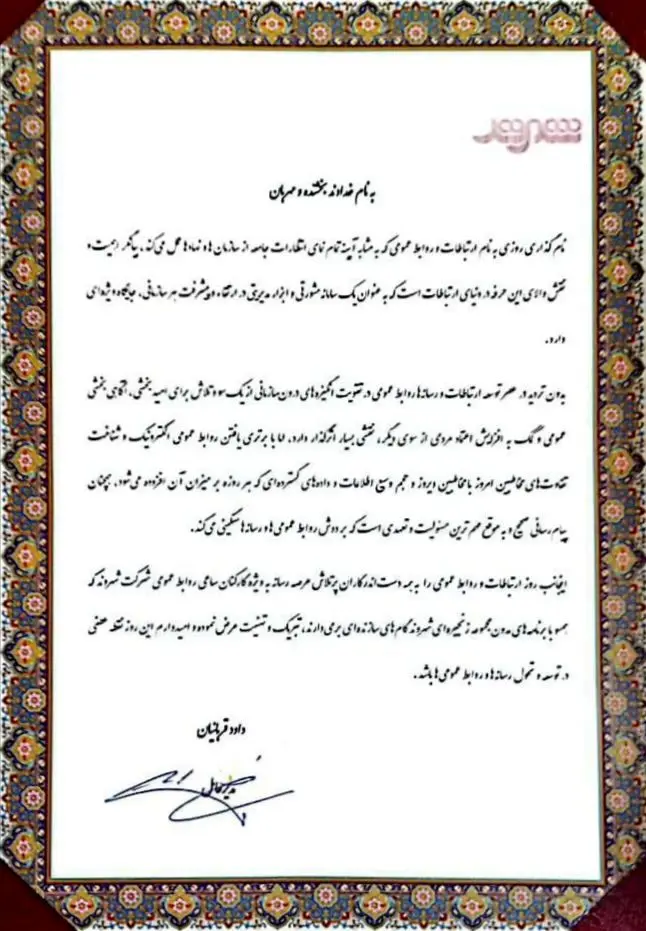 شهروند
به نام خداوند بخشنده و مهربان
نام گذاری روزی به نام ارتباطات و روابط عمومی که به مثابه آیینه تمام نمای انتظارات جامعه از سازمان ها و نهادها عمل می کند، بیانگر اهمیت و
نقش والای این حرفه در دنیای ارتباطات است که به عنوان یک سامانه مشورتی و ابزار مدیریتی در ارتقاء و پیشرفت هر سازمانی، جایگاه ویژه ای
دارد.
بدون تردید در عصر توسعه ارتباطات و رسانه ها روابط عمومی در تقویت انگیزه های درون سازمانی از یک سو و تلاش برای امید بخشی، آگاهی بخشی
عمومی و کمک به افزایش اعتماد مردمی از سوی دیگر، نقشی بسیار اثرگذار دارد. اما با برتری یافتن روابط عمومی الکترونیک و شناخت
تفاوت های مخاطبین امروز با مخاطبین دیروز و حجم وسیع اطلاعات و داده های گسترده ای که هر روزه بر میزان آن افزوده می شود، همچنان
پیام رسانی صحیح و به موقع مهم ترین مسئولیت و تعهدی است که بر دوش روابط عمومی ها و رسانه ها سنگینی می کند.
اینجانب روز ارتباطات و روابط عمومی را به همه دست اندرکاران پرتلاش عرصه رسانه به ویژه کارکنان ساعی روابط عمومی شرکت شهروند که
همسو با برنامه های مدون مجموعه زنجیره ای شهروند گام های سازنده ای برمی دارند، تبریک و تهنیت عرض نموده و امیدوارم این روز نقطه عطفی
در توسعه و تحول رسانه ها و روابط عمومی ها باشد.
داود قربانیان
مدیرعامل